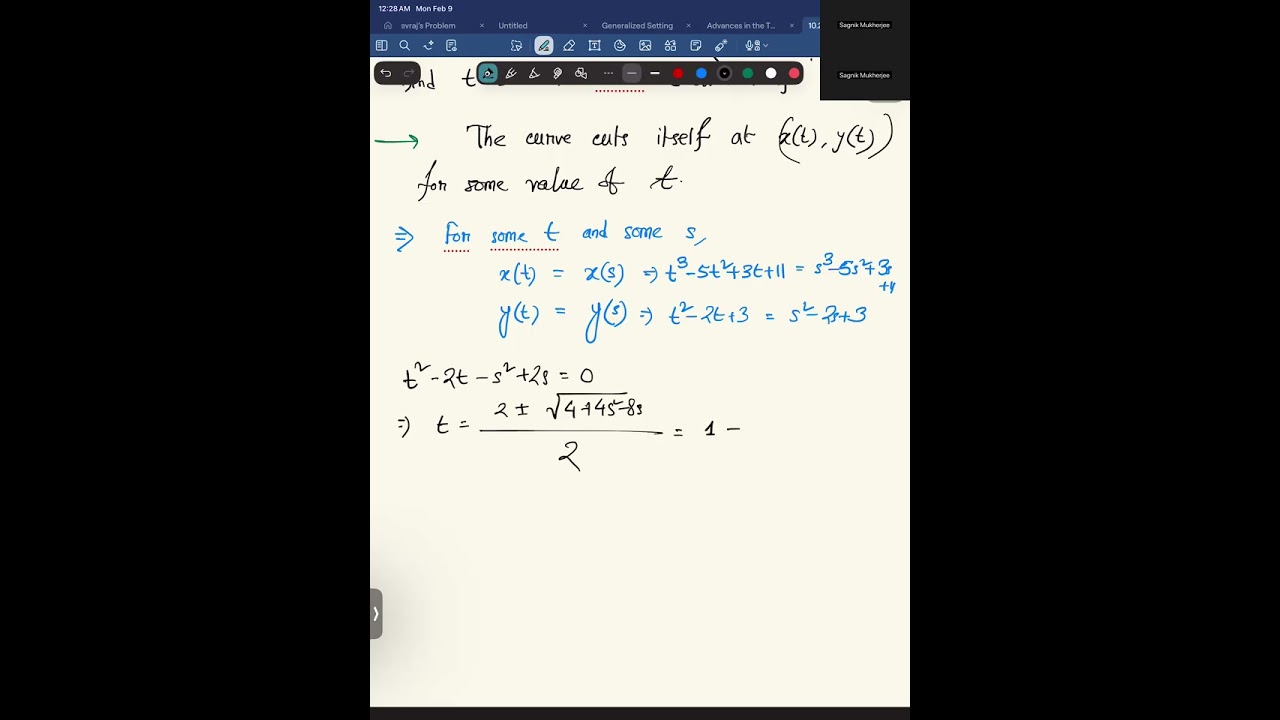 12:28 AM Mon Feb 9
evraj's Problem × Untitled × Generalized Setting × Advances in the T... × 10.2
Sagnik Mukherjee
Sagnik Mukherjee
find t
→ The curve cuts itself at (x(t), y(t))
for some value of t.
⇒ for some t and some s,
x(t) = x(s) ⇒ t³-5t²+3t+11 = s³-5s²+3s
+11
y(t) = y(s) ⇒ t²-2t+3 = s²-2s+3
t²-2t-s²+2s=0
⇒ t = (2 ± √(4+4s²-8s))/2 = 1 -